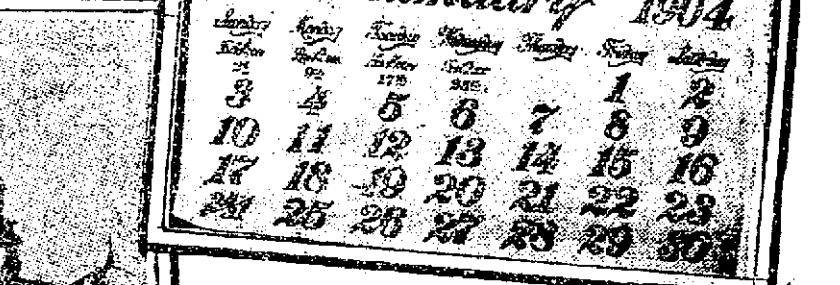 January 1904
Sunday Monday Tuesday Wednesday Thursday Friday Saturday
17th
1 2
3 4 5 6 7 8 9
10 11 12 13 14 15 16
17 18 19 20 21 22 23
25 26 27 28 29 30